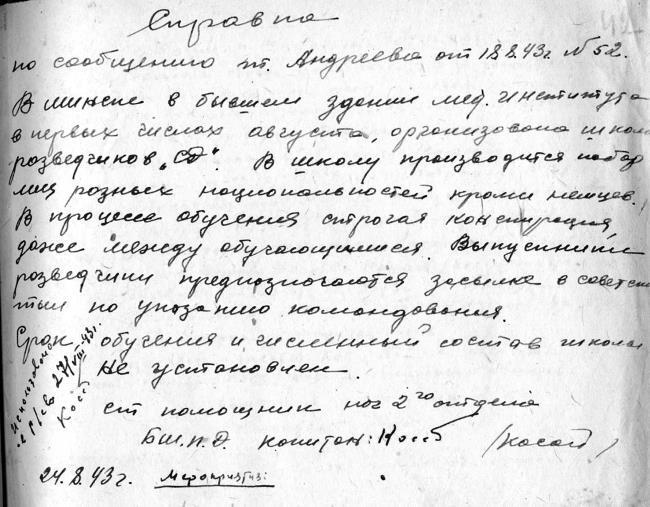 Справка
по сообщению т. Андреева от 18.8.43г. № 52.
В Минске в бывшем здании мед. института
в первых числах августа, организована школа
розведчиков „СД“. В школу производится набор
лиц розных национальностей кроме немцев.
В процессе обучения строгая конспирация
даже между обучающимися. Выпускники
розведчики предназначаются засылке в советский
тыл по указанию командования.
Срок обучения и численный состав школы
не установлен.
ст помощник нач 2го отдела
БШПД капитан: Коссой (Коссой)
24.8.43г. Мероприятия:
Использовано
27/VIII-43г.
Коссой
42